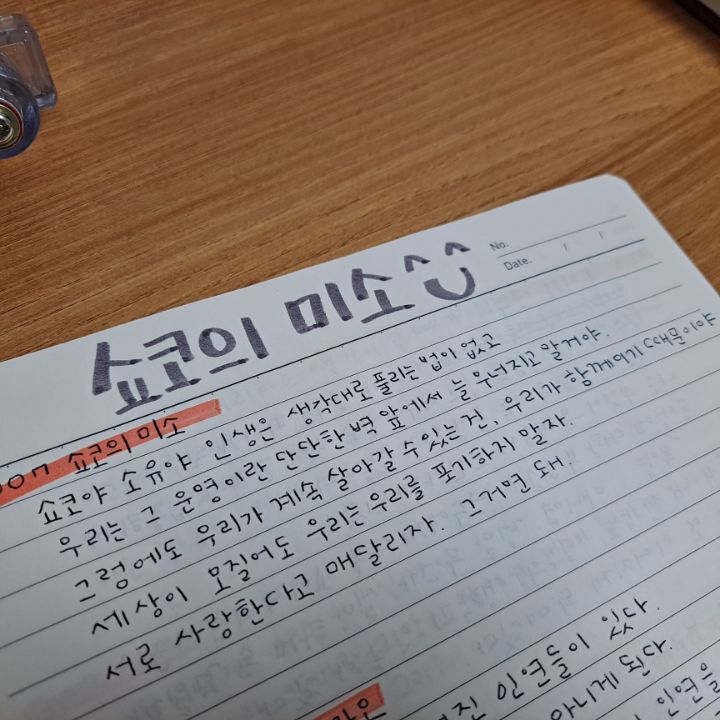 쇼코의 미소
No.
Date. / /
쇼코의 미소
쇼코야 소유야 인생은 생각대로 풀리는 법이 없고
우리는 그 운명이란 단단한 벽 앞에서 늘 무너지고 말거야.
그럼에도 우리가 계속 살아갈 수 있는 건, 우리가 함께이기 때문이야
세상이 모질어도 우리는 우리를 포기하지 말자.
서로 사랑한다고 매달리자. 그거면 돼.
인연들이 있다.
아니게 된다.
인연을